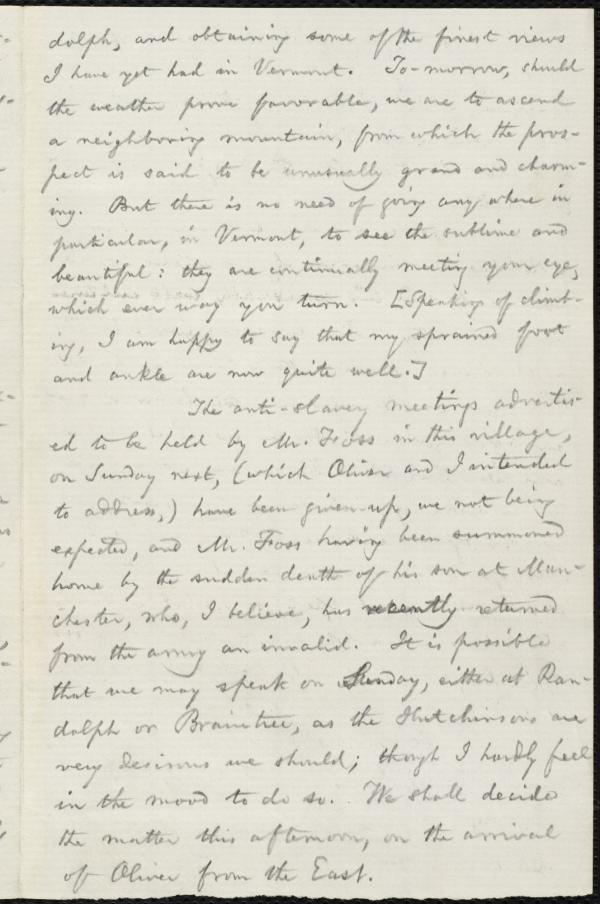 dolph, and obtaining some of the finest views
I have yet had in Vermont. To-morrow, should
the weather prove favorable, we are to ascend
a neighboring mountain, from which the pros-
pect is said to be unusually grand and charm-
ing. But there is no need of going any where in
particular, in Vermont, to see the sublime and
beautiful: they are continually meeting your eye,
which ever way you turn. [Speaking of climb-
ing, I am happy to say that my sprained foot
and ankle are now quite well.]
The anti-slavery meetings advertis-
ed to be held by Mr. Foss in this village,
on Sunday next, (which Oliver and I intended
to address,) have been given up, we not being
expected, and Mr. Foss having been summoned
home by the sudden death of his son at Man-
chester, who, I believe, has recently returned
from the army an invalid. It is possible
that we may speak on Sunday, either at Ran-
dolph or Braintree, as the Hutchinsons are
very desirous we should; though I hardly feel
in the mood to do so. We shall decide
the matter this afternoon, on the arrival
of Oliver from the East.